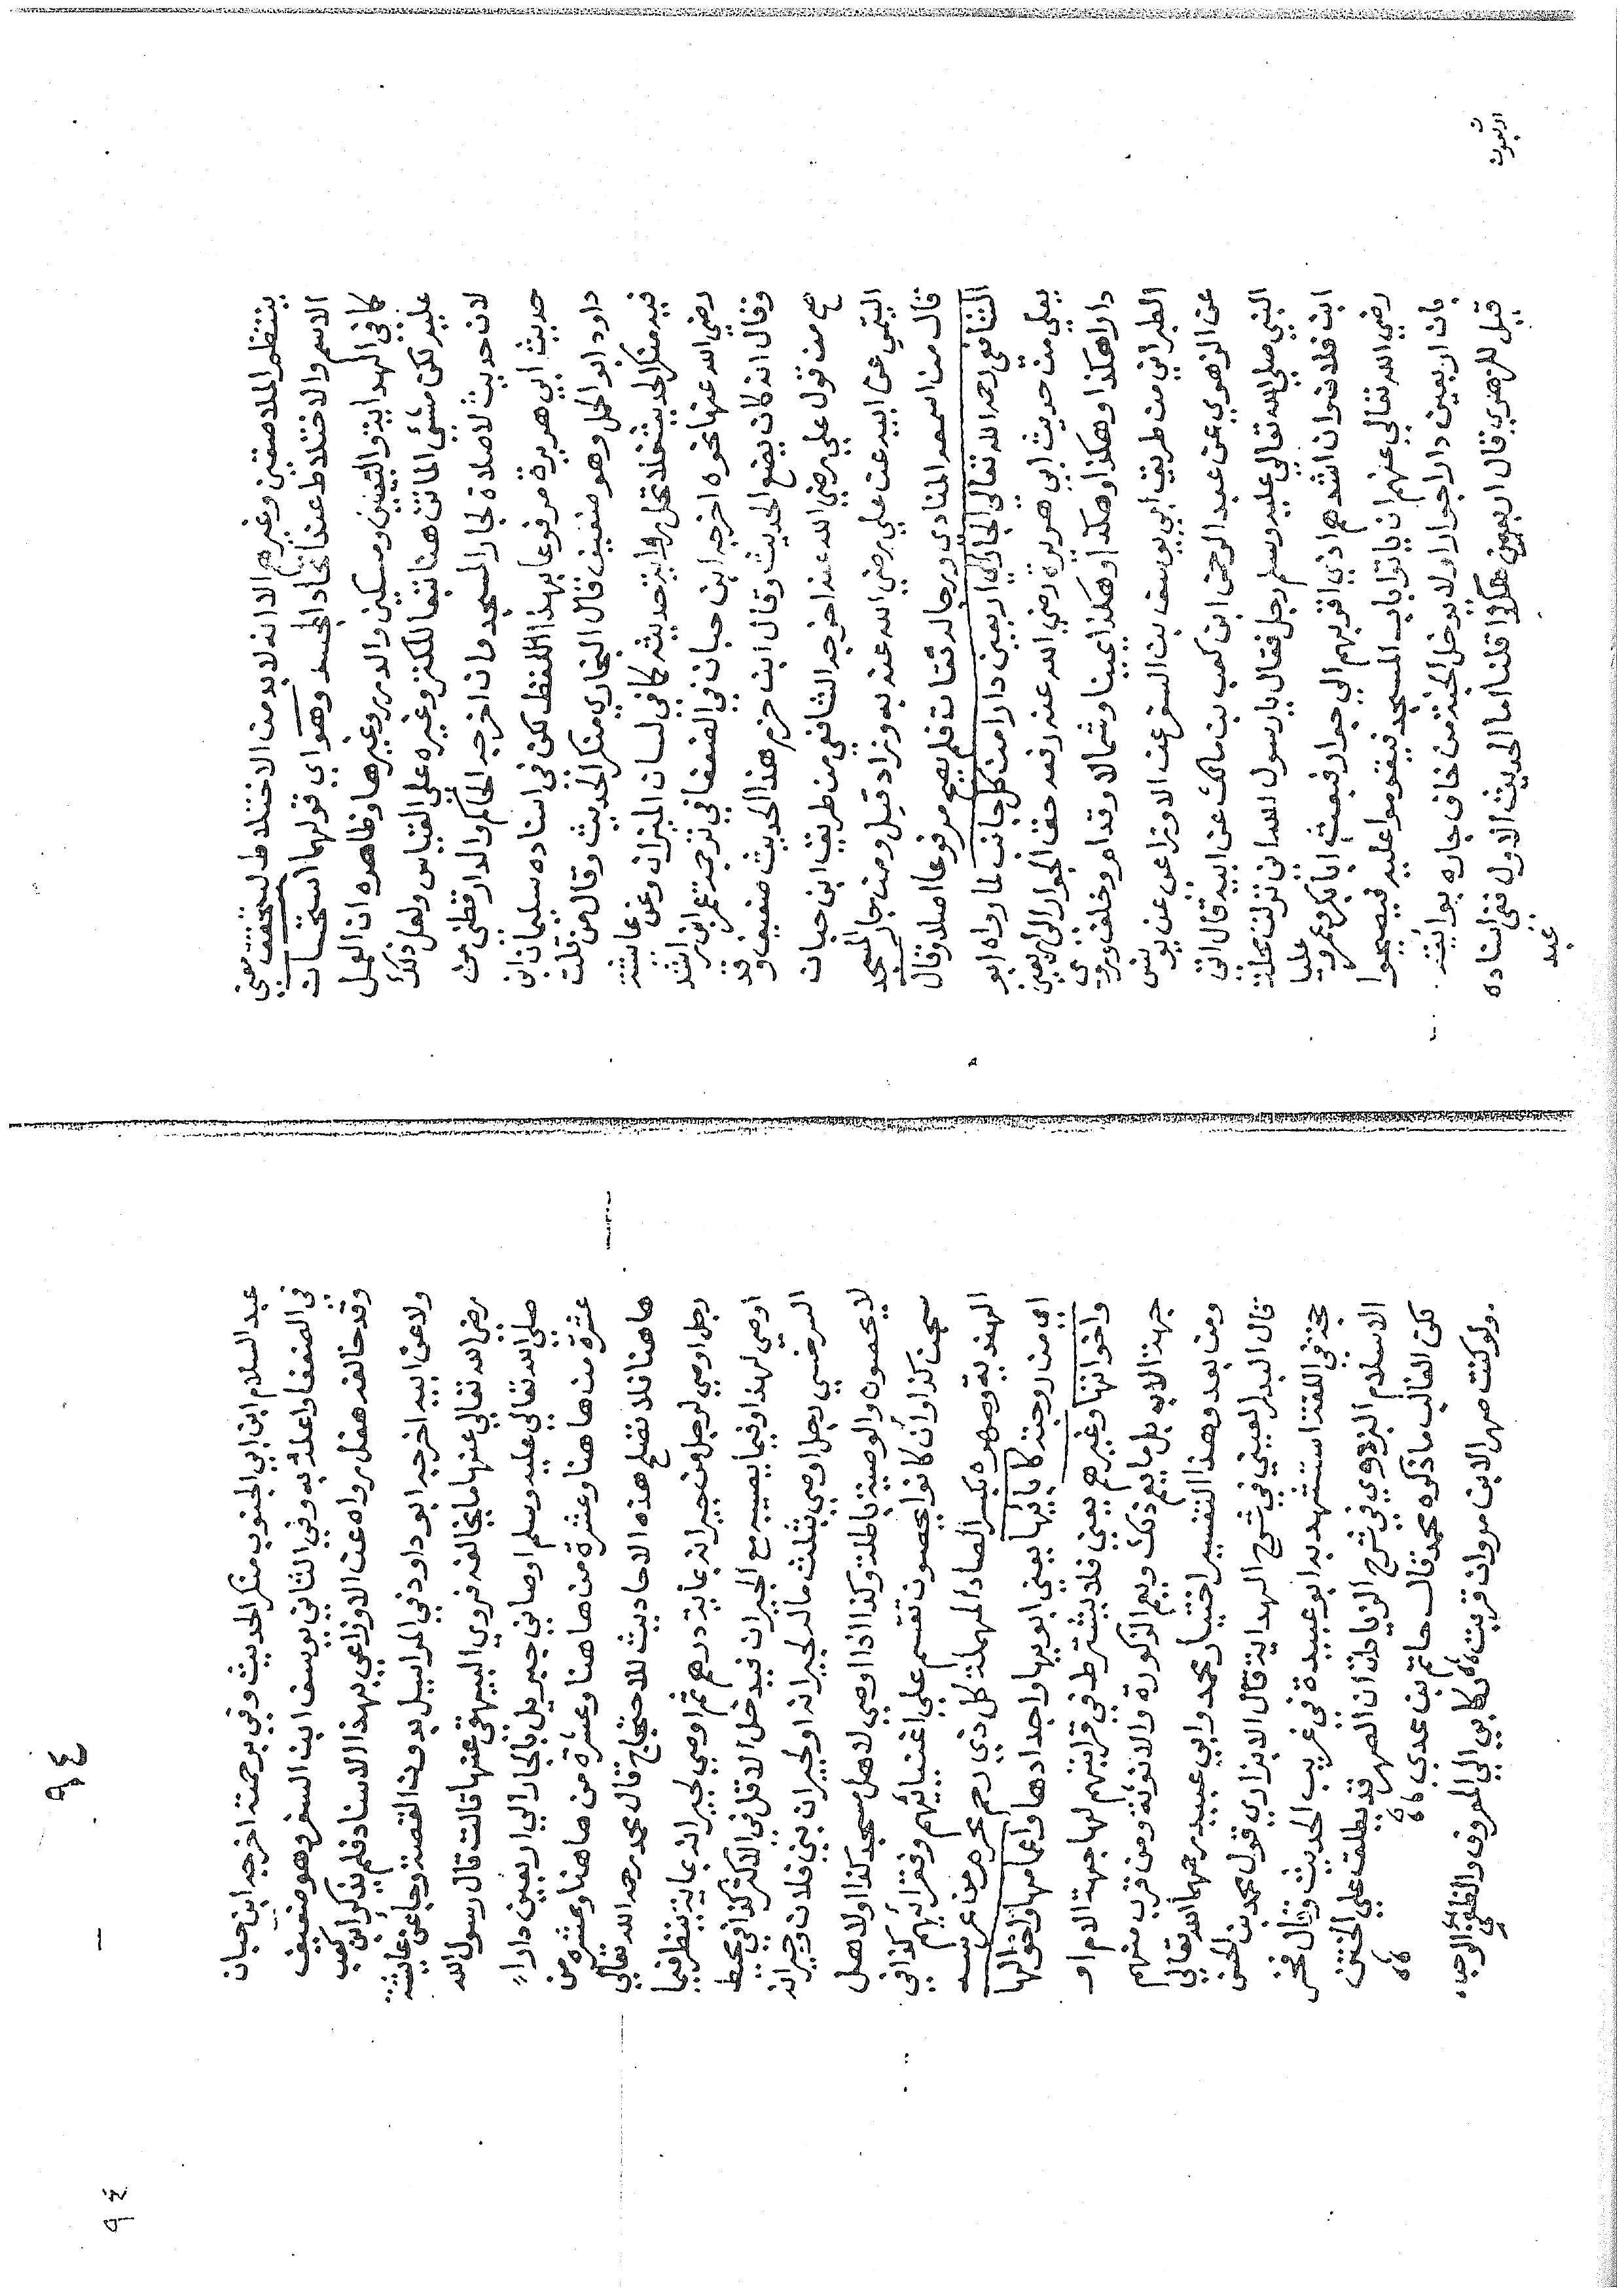 ينتظم الملاصقين وغيرهم الا انه لابد من الاختلاط ليتحقق معنى
الاسم والاختلاط عند اتحاد المسجد وهو اي قولهما استحسان
كما في الهداية والتبيين ومسكين والدرر وغيرها وظاهره ان العمل
عليه لكن مشى الماتن هنا تبعا للكنز وغيره على القياس ولعل ذلك
لان حديث لا صلاة لجار المسجد وان اخرجه الحاكم والدارقطني من
حديث ابي هريرة مرفوعا بهذا اللفظ لكن في اسناده سليمان ابن
داود ابو الجمل وهو ضعيف قال البخاري منكر الحديث وقال من قلت
فيه منكر الحديث فلا تحل رواية حديثه كما في لسان الميزان وعن عائشة
رضي الله عنها نحوه اخرجه ابن حبان في الضعفا في ترجمة عمر ابن راشد
وقال انه كان يضع الحديث وقال ابن حزم هذا الحديث ضعيف وقد
صح من قول علي رضي الله عنه اخرجه الشافعي من طريق ابن حبان
التيمي عن ابيه عن علي رضي الله عنه به وزاد قيل ومن جار المسجد
قال من اسمعه المنادي ورجاله ثقات فلم يصح مرفوعا اصلا وقال
الشافعي رحمه الله تعالى الجار الى اربعين دارا من كل جانب لما رواه ابو
يعلي من حديث ابي هريرة رضي الله عنه رفعه حق الجوار الى اربعين
دارا هكذا وهكذا وهكذا وهكذا يمينا وشمالا وقدام وخلف وروى
الطبراني من طريق ابي يوسف بن السفر عن الاوزاعي عن يونس
عن الزهري عن عبد الرحمن ابن كعب بن مالك عن ابيه قال اتى
النبي صلى الله تعالى عليه وسلم رجل فقال يا رسول الله اني نزلت محلة
ابن فلان وان اشدهم اذي اقربهم الي جوار فبعث ابا بكر وعمر وعليا
رضي الله تعالى عنهم ان ياتوا باب المسجد فيقوموا عليه فيصيحوا
بان اربعين دارا جوارا ولا يدخل الجنة من خاف جاره بوائقه
قيل للزهري قال اربعين هكذا قلنا اما الحديث الاول ففي اسناده
عبد
٩٤
عبد السلام ابن ابي الجنوب منكر الحديث وفي ترجمته اخرجه ابن حبان
في الضعفا واعله به وفي الثاني يوسف ابن السفر وهو ضعيف
وقد خالفه هقل رواه عن الاوزاعي بهذا الاسناد فلم يذكر ابن كعب
ولا عن ابيه اخرجه ابو داود في المراسيل بدون القصة وجا عن عايشة
رضي الله تعالى عنها ما يخالفه فروي البيهقي عنها قالت قال رسول الله
صلى الله تعالى عليه وسلم اوصاني جبريل بالجار الي اربعين دارا
عشرة من هاهنا وعشرة من هاهنا وعشرة من هاهنا وعشره من
هاهنا فلا تصلح هذه الاحاديث للاحتجاج قال محمد رحمه الله تعالى
رجل اوصي لرجل من جيرانه بماية درهم ثم اوصي لجيرانه بماية ينظر فيما
اوصي لهذا وفيما يصيبه مع الجيران فيدخل الاقل في الاكثر كذا في محيط
السرخسي رجل اوصي بثلث ماله لجيرانه او لجيران بني فلان وجيرانه
لا يحصون والوصية باطلة وكذا اذا اوصي لاهل مسجد كذا او لاهل
سجن كذا وان كانوا يحصون تقسم علي اغنيائهم وفقرائهم كذا في
الهندية وصهره بكسر الصاد المهملة كل ذي رحم محرم من عرسه
اي من زوجته كابائها يعني ابويها واجدادها واعمامها واخوالها
واخواتها وغيرهم يعني فلا يشترط في قرابتهم لها جهة الام او
جهة الاب بل ما يعم ذلك ويعم الذكورة والانوثة ومن قرب منهم
ومن بعد وهذا التفسير اختيار محمد وابي عبيد رحمهما الله تعالى
قال البدر العيني في شرح الهداية قال الانزاري قول محمد بن الحسن
حجة في اللغة استشهد به ابو عبيدة في غريب الحديث وقال فخر
الاسلام البزدوي في شرح الزيادات ان الصهر قد يطلق علي الختن
لكن الغالب ما ذكره محمد قال حاتم بن عدي
ولو كنت صهر الابن مروان قربت ركابي الي المعروف والطعن الرحب
٩٤